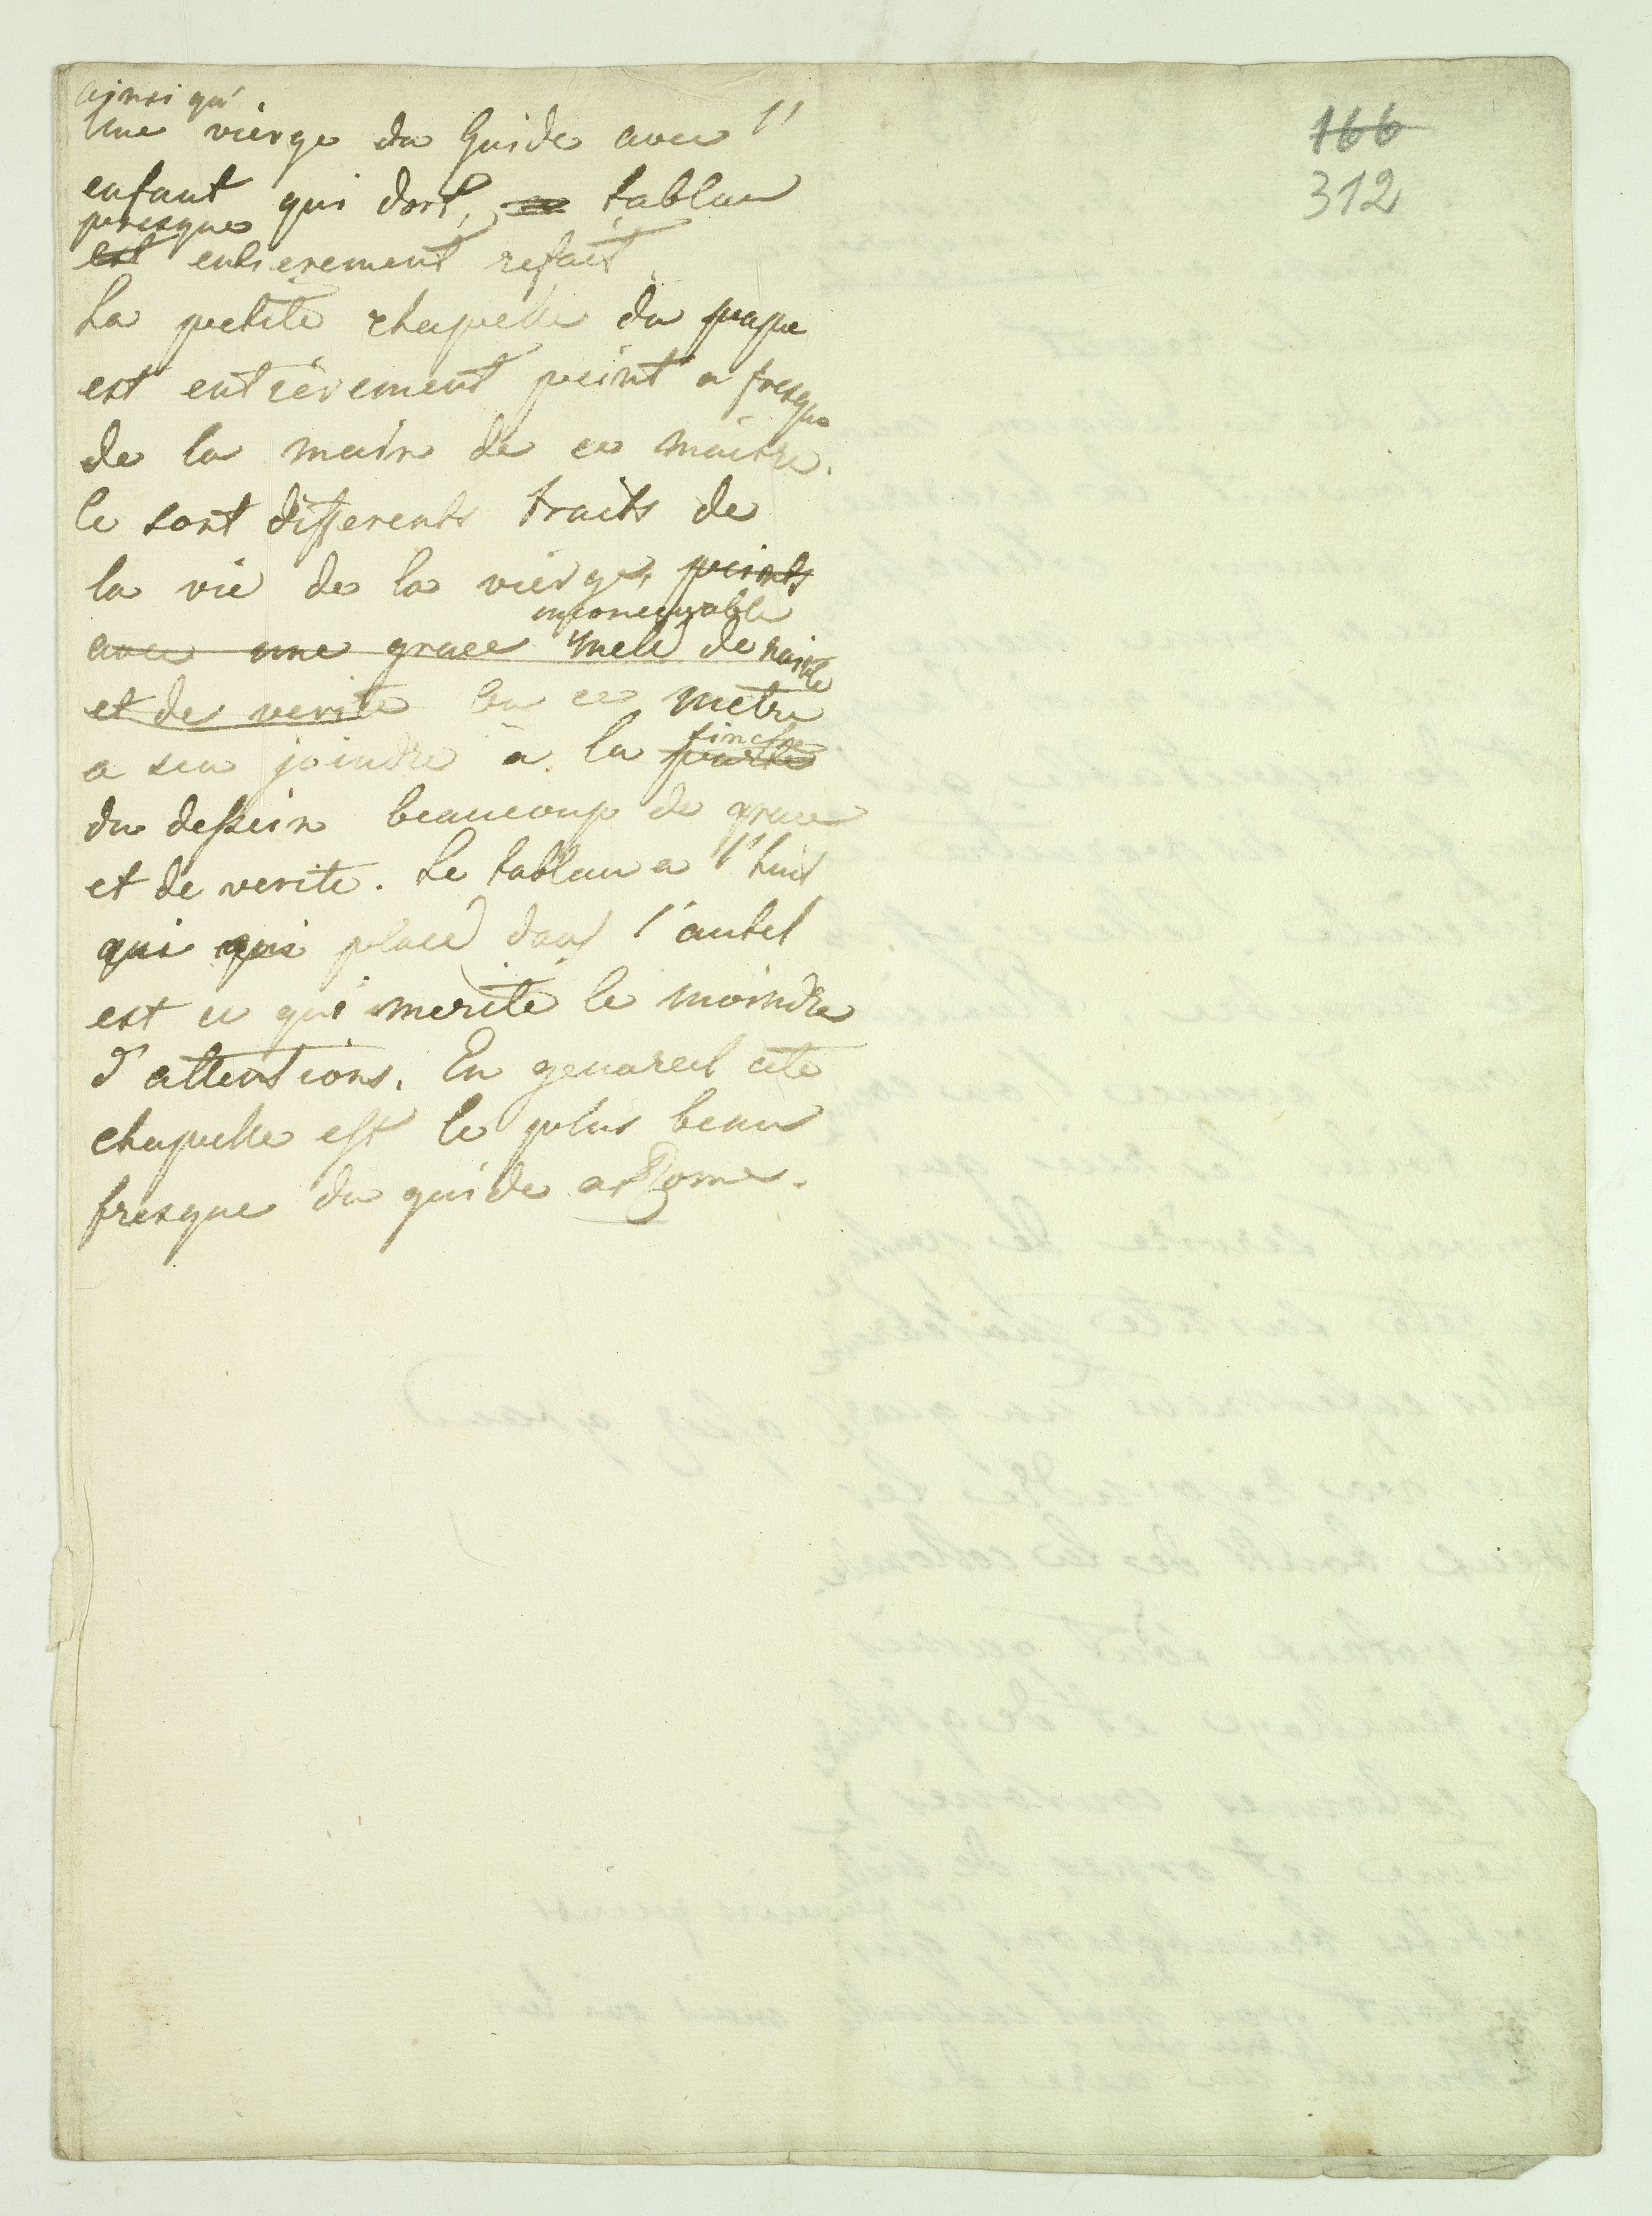 166
312
ainsi qu'
Une vierge du Guide avec l'
enfant qui dort, tableau
presque
est entierement refait
La petite chapelle du pape
est entièrement peint a fresque
de la main de ce maitre.
Ce sont differents traits de
la vie de la vierge, peints
inconcevable
avec une grace melé de naivte
et de verité ou ce metre
a seu joindre a la
du dessein beaucoup de grace
et de verite. Le tableau a l'huil
qui qui placé dans l'autel
est ce qui merite le moindre
d'attentions. En genarell cete
chapelle est le plus beau
fresque du guide a Rome.